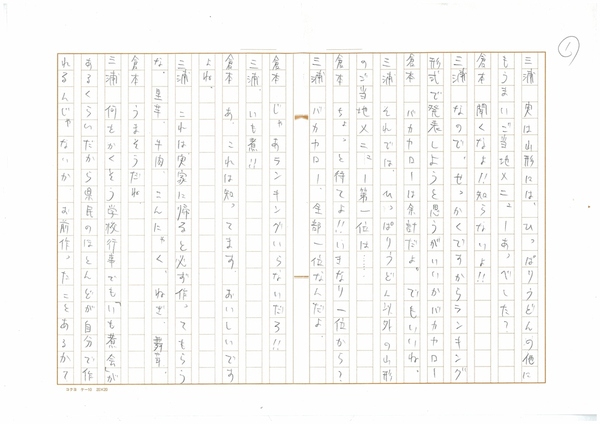 1
三浦 実は山形には、ひっぱりうどんの他に
もうまいご当地メニューあっべした?
倉本 聞くなよ!!知らないよ!!
三浦 なので、せっかくですからランキング
形式で発表しようと思うがいいかバカヤロー
倉本 バカヤローは余計だよ。でもいいね。
三浦 それでは、ひっぱりうどん以外の山形
のご当地メニュー第一位は……
倉本 ちょっと待てよ!!いきなり一位から?
三浦 バカヤロー、全部一位なんだよ。
倉本 じゃあランキングいらないだろ!!
三浦 いも煮!!
倉本 あ、これは知ってます。おいしいです
よね。
三浦 これは実家に帰ると必ず作ってもらう
な。里芋、牛肉、こんにゃく、ねぎ、舞茸、
倉本 うまそうだね
三浦 何もかくそう学校行事でも「いも煮会」が
あるくらいだから県民のほとんどが自分で作
れるんじゃないか お前作ったことあるかて